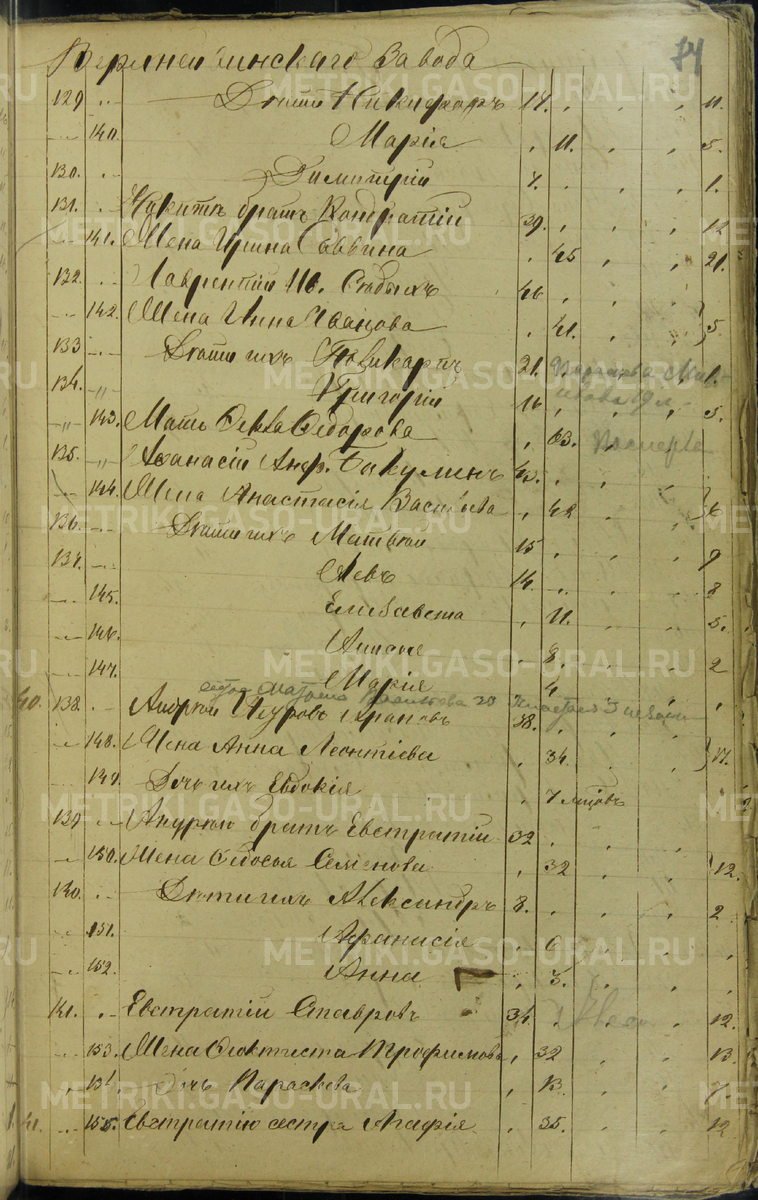 74
Верхней инскаго Завода
129 Дѣти Никифоръ 14. 11.
140. Марія 11. 5.
130. Димитрій 7. 1.
131. Никитѣ братъ Кондратій 39. 12
141. Жена Ирина Саввина 45 21.
132. Лаврентій Ив. 46
142. Жена Анна Иванова 41. 5.
133 Дѣти ихъ Поликарпъ 21. 1.
134. Григорій 16 5.
143. Мать Ѳекла Ѳедорова 63.
135. Аѳанасій Анд. Бакулинъ 43.
144. Жена Анастасія Васильева 42 6
136. Дѣти ихъ Матвѣй 15 9
137. Левъ 14. 8
145. Елисавета 11. 5.
146. Анисья 8. 2
147. Марія 4
20
40. 138. Андрей Храповъ 38.
148. Жена Анна Леонтіева 34. 17.
149. Дочь ихъ Евдокія 7 мѣсяцовъ
139 Андрею братъ Евстратій 32
150. Жена Ѳедосья Семенова 32 12.
140. Дѣти ихъ Александръ 8. 2
151. Афанасія 6
152. Анна 3.
141. Евстратій Ставровъ 34. 12.
153. Жена Ѳеоктиста Трофимова 32 13.
154 Дочь Параскева 13. 7
41. 155. Евстратію сестра Агафія 35. 12
METRIKI.GASO-URAL.RU